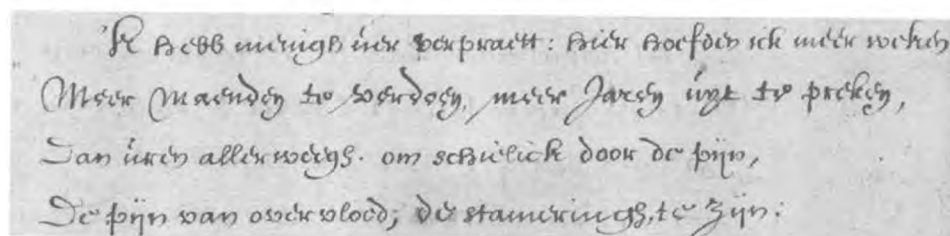 'K hebb menigh úer verpraett: hier hoefden ick meer weken
Meer Maenden te verdoen, meer Jaren úyt te preken,
Dan úren allerweegh. om schielick door de pijn,
De pijn van overvloed, de stameringh, te zijn: